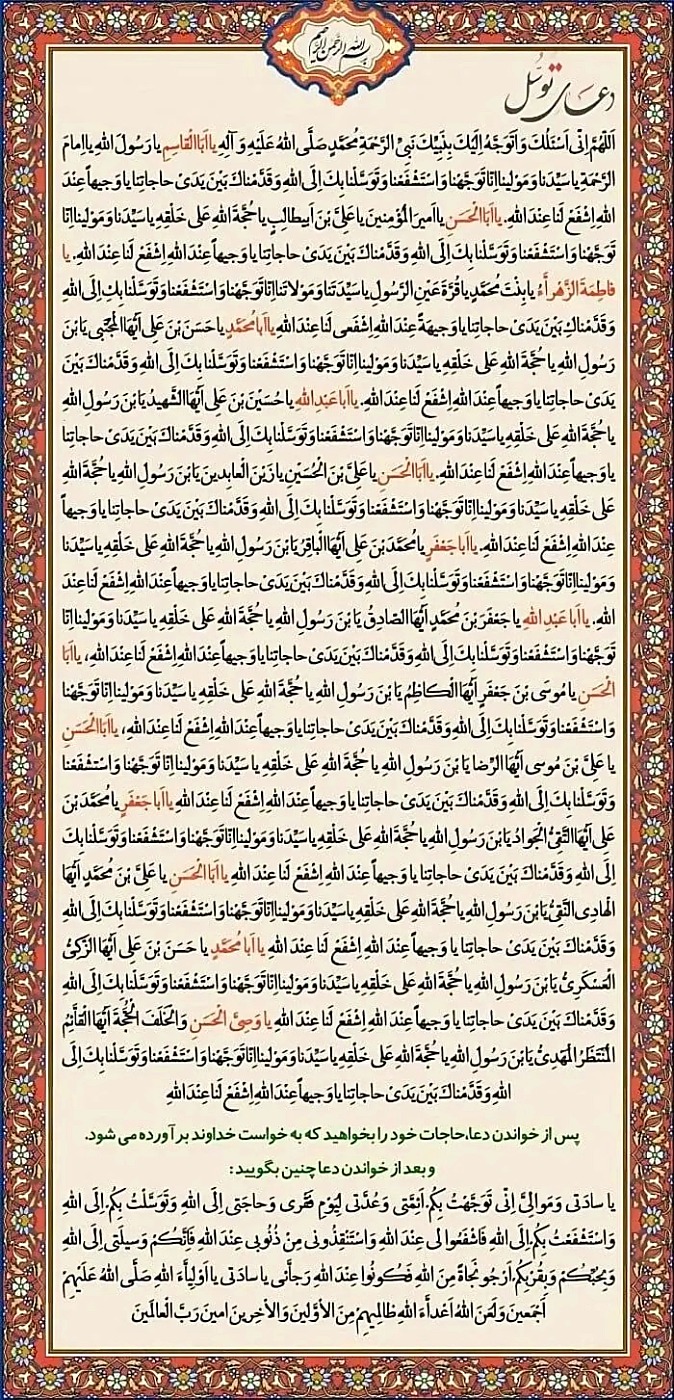 بسم الله الرحمن الرحیم
دعای توسل
اَللّهُمَّ اِنّی اَسْئَلُكَ وَاَتَوَجَّهُ اِلَيْكَ بِنَبِيِّكَ نَبِیِّ الرَّحْمَةِ مُحَمَّدٍ صَلَّی اللهُ عَلَيْهِ وَ آلِهِ يا اَبَا الْقاسِمِ يا رَسُولَ اللهِ يا اِمامَ
الرَّحْمَةِ يا سَيِّدَنا وَ مَوْلينا اِنّا تَوَجَّهْنا وَاسْتَشْفَعْنا وَتَوَسَّلْنا بِكَ اِلَی اللهِ وَقَدَّمْناكَ بَيْنَ يَدَیْ حاجاتِنا يا وَجيهاً عِنْدَ
اللهِ اِشْفَعْ لَنا عِنْدَ اللهِ. يا اَبَا الْحَسَنِ يا اَميرَ الْمُؤْمِنينَ يا عَلِیَّ بْنَ اَبيطالِبٍ يا حُجَّةَ اللهِ عَلی خَلْقِهِ يا سَيِّدَنا وَ مَوْلينا اِنّا
تَوَجَّهْنا وَاسْتَشْفَعْنا وَتَوَسَّلْنا بِكَ اِلَی اللهِ وَقَدَّمْناكَ بَيْنَ يَدَیْ حاجاتِنا يا وَجيهاً عِنْدَ اللهِ اِشْفَعْ لَنا عِنْدَ اللهِ. يا
فاطِمَةَ الزَّهْراَّءُ يا بِنْتَ مُحَمَّدٍ يا قُرَّةَ عَيْنِ الرَّسُولِ يا سَيِّدَتَنا وَ مَوْلاتَنا اِنّا تَوَجَّهْنا وَاسْتَشْفَعْنا وَتَوَسَّلْنا بِكِ اِلَی اللهِ
وَقَدَّمْناكِ بَيْنَ يَدَیْ حاجاتِنا يا وَجيهَةً عِنْدَ اللهِ اِشْفَعی لَنا عِنْدَ اللهِ يا اَبا مُحَمَّدٍ يا حَسَنَ بْنَ عَلِیٍّ اَيُّهَا الْمُجْتَبی يَا بْنَ
رَسُولِ اللهِ يا حُجَّةَ اللهِ عَلی خَلْقِهِ يا سَيِّدَنا وَ مَوْلينا اِنّا تَوَجَّهْنا وَاسْتَشْفَعْنا وَتَوَسَّلْنا بِكَ اِلَی اللهِ وَقَدَّمْناكَ بَيْنَ
يَدَیْ حاجاتِنا يا وَجيهاً عِنْدَ اللهِ اِشْفَعْ لَنا عِنْدَ اللهِ. يا اَبا عَبْدِ اللهِ يا حُسَيْنَ بْنَ عَلِیٍّ اَيُّهَا الشَّهيدُ يَا بْنَ رَسُولِ اللهِ
يا حُجَّةَ اللهِ عَلی خَلْقِهِ يا سَيِّدَنا وَ مَوْلينا اِنّا تَوَجَّهْنا وَاسْتَشْفَعْنا وَتَوَسَّلْنا بِكَ اِلَی اللهِ وَقَدَّمْناكَ بَيْنَ يَدَیْ حاجاتِنا
يا وَجيهاً عِنْدَ اللهِ اِشْفَعْ لَنا عِنْدَ اللهِ. يا اَبَا الْحَسَنِ يا عَلِیَّ بْنَ الْحُسَيْنِ يا زَيْنَ الْعابِدينَ يَا بْنَ رَسُولِ اللهِ يا حُجَّةَ اللهِ
عَلی خَلْقِهِ يا سَيِّدَنا وَ مَوْلينا اِنّا تَوَجَّهْنا وَاسْتَشْفَعْنا وَتَوَسَّلْنا بِكَ اِلَی اللهِ وَقَدَّمْناكَ بَيْنَ يَدَیْ حاجاتِنا يا وَجيهاً
عِنْدَ اللهِ اِشْفَعْ لَنا عِنْدَ اللهِ. يا اَبا جَعْفَرٍ يا مُحَمَّدَ بْنَ عَلِیٍّ اَيُّهَا الْباقِرُ يَا بْنَ رَسُولِ اللهِ يا حُجَّةَ اللهِ عَلی خَلْقِهِ يا سَيِّدَنا
وَ مَوْلينا اِنّا تَوَجَّهْنا وَاسْتَشْفَعْنا وَتَوَسَّلْنا بِكَ اِلَی اللهِ وَقَدَّمْناكَ بَيْنَ يَدَیْ حاجاتِنا يا وَجيهاً عِنْدَ اللهِ اِشْفَعْ لَنا عِنْدَ
اللهِ. يا اَبا عَبْدِ اللهِ يا جَعْفَرَ بْنَ مُحَمَّدٍ اَيُّهَا الصّادِقُ يَا بْنَ رَسُولِ اللهِ يا حُجَّةَ اللهِ عَلی خَلْقِهِ يا سَيِّدَنا وَ مَوْلينا اِنّا
تَوَجَّهْنا وَاسْتَشْفَعْنا وَتَوَسَّلْنا بِكَ اِلَی اللهِ وَقَدَّمْناكَ بَيْنَ يَدَیْ حاجاتِنا يا وَجيهاً عِنْدَ اللهِ اِشْفَعْ لَنا عِنْدَ اللهِ، يا اَبَا
الْحَسَنِ يا مُوسَی بْنَ جَعْفَرٍ اَيُّهَا الْكاظِمُ يَا بْنَ رَسُولِ اللهِ يا حُجَّةَ اللهِ عَلی خَلْقِهِ يا سَيِّدَنا وَ مَوْلينا اِنّا تَوَجَّهْنا
وَاسْتَشْفَعْنا وَتَوَسَّلْنا بِكَ اِلَی اللهِ وَقَدَّمْناكَ بَيْنَ يَدَیْ حاجاتِنا يا وَجيهاً عِنْدَ اللهِ اِشْفَعْ لَنا عِنْدَ اللهِ، يا اَبَا الْحَسَنِ
يا عَلِیَّ بْنَ مُوسی اَيُّهَا الرِّضا يَا بْنَ رَسُولِ اللهِ يا حُجَّةَ اللهِ عَلی خَلْقِهِ يا سَيِّدَنا وَ مَوْلينا اِنّا تَوَجَّهْنا وَاسْتَشْفَعْنا
وَتَوَسَّلْنا بِكَ اِلَی اللهِ وَقَدَّمْناكَ بَيْنَ يَدَیْ حاجاتِنا يا وَجيهاً عِنْدَ اللهِ اِشْفَعْ لَنا عِنْدَ اللهِ يا اَبا جَعْفَرٍ يا مُحَمَّدَ بْنَ
عَلِیٍّ اَيُّهَا التَّقِیُّ الْجَوادُ يَا بْنَ رَسُولِ اللهِ يا حُجَّةَ اللهِ عَلی خَلْقِهِ يا سَيِّدَنا وَ مَوْلينا اِنّا تَوَجَّهْنا وَاسْتَشْفَعْنا وَتَوَسَّلْنا بِكَ
اِلَی اللهِ وَقَدَّمْناكَ بَيْنَ يَدَیْ حاجاتِنا يا وَجيهاً عِنْدَ اللهِ اِشْفَعْ لَنا عِنْدَ اللهِ يا اَبَا الْحَسَنِ يا عَلِیَّ بْنَ مُحَمَّدٍ اَيُّهَا
الْهادِی النَّقِیُّ يَا بْنَ رَسُولِ اللهِ يا حُجَّةَ اللهِ عَلی خَلْقِهِ يا سَيِّدَنا وَ مَوْلينا اِنّا تَوَجَّهْنا وَاسْتَشْفَعْنا وَتَوَسَّلْنا بِكَ اِلَی اللهِ
وَقَدَّمْناكَ بَيْنَ يَدَیْ حاجاتِنا يا وَجيهاً عِنْدَ اللهِ اِشْفَعْ لَنا عِنْدَ اللهِ يا اَبا مُحَمَّدٍ يا حَسَنَ بْنَ عَلِیٍّ اَيُّهَا الزَّكِیُّ
الْعَسْكَرِیُّ يَا بْنَ رَسُولِ اللهِ يا حُجَّةَ اللهِ عَلی خَلْقِهِ يا سَيِّدَنا وَ مَوْلينا اِنّا تَوَجَّهْنا وَاسْتَشْفَعْنا وَتَوَسَّلْنا بِكَ اِلَی اللهِ
وَقَدَّمْناكَ بَيْنَ يَدَیْ حاجاتِنا يا وَجيهاً عِنْدَ اللهِ اِشْفَعْ لَنا عِنْدَ اللهِ يا وَصِیَّ الْحَسَنِ وَالْخَلَفَ الْحُجَّةَ اَيُّهَا الْقاَّئِمُ
الْمُنْتَظَرُ الْمَهْدِیُّ يَا بْنَ رَسُولِ اللهِ يا حُجَّةَ اللهِ عَلی خَلْقِهِ يا سَيِّدَنا وَ مَوْلينا اِنّا تَوَجَّهْنا وَاسْتَشْفَعْنا وَتَوَسَّلْنا بِكَ اِلَی
اللهِ وَقَدَّمْناكَ بَيْنَ يَدَیْ حاجاتِنا يا وَجيهاً عِنْدَ اللهِ اِشْفَعْ لَنا عِنْدَ اللهِ
پس از خواندن دعا، حاجات خود را بخواهید که به خواست خداوند برآورده می شود.
و بعد از خواندن دعا چنین بگویید :
يا سادَتی وَ مَوالِیَّ اِنّی تَوَجَّهْتُ بِكُمْ اَئِمَّتی وَعُدَّتی لِيَوْمِ فَقْری وَحاجَتی اِلَی اللهِ وَتَوَسَّلْتُ بِكُمْ اِلَی اللهِ
وَاسْتَشْفَعْتُ بِكُمْ اِلَی اللهِ فَاشْفَعُوا لی عِنْدَ اللهِ وَاسْتَنْقِذُونی مِنْ ذُنُوبی عِنْدَ اللهِ فَاِنَّكُمْ وَسيلَتی اِلَی اللهِ
وَبِحُبِّكُمْ وَبِقُرْبِكُمْ اَرْجُو نَجاةً مِنَ اللهِ فَكُونُوا عِنْدَ اللهِ رَجاَّئی يا سادَتی يا اَوْلِياَّءَ اللهِ صَلَّی اللهُ عَلَيْهِمْ
اَجْمَعينَ وَلَعَنَ اللهُ اَعْداَّءَ اللهِ ظالِميهِمْ مِنَ الْأَوَّلينَ وَالْأخِرينَ امينَ رَبَّ الْعالَمينَ